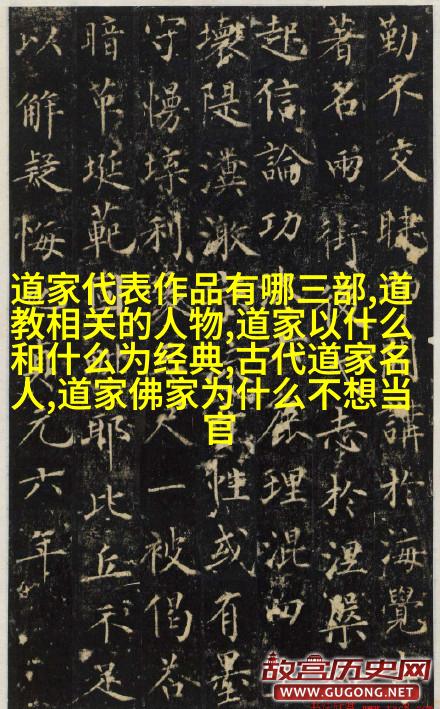 勤不交睫
講於海覺
著名兩街
志於涅槃
起信論功
屈理混四
壞隄
性或有墨
守慢利
一被偈若
暗埏範
耶比丘示足
以解疑悔
元六年
道家代表作品有哪三部,道
教相关的人物,道家以什么
和什么为经典,古代道家名
人,道家佛家为什么不想当
官
故宫历史网
WWW.GUGONG.NET